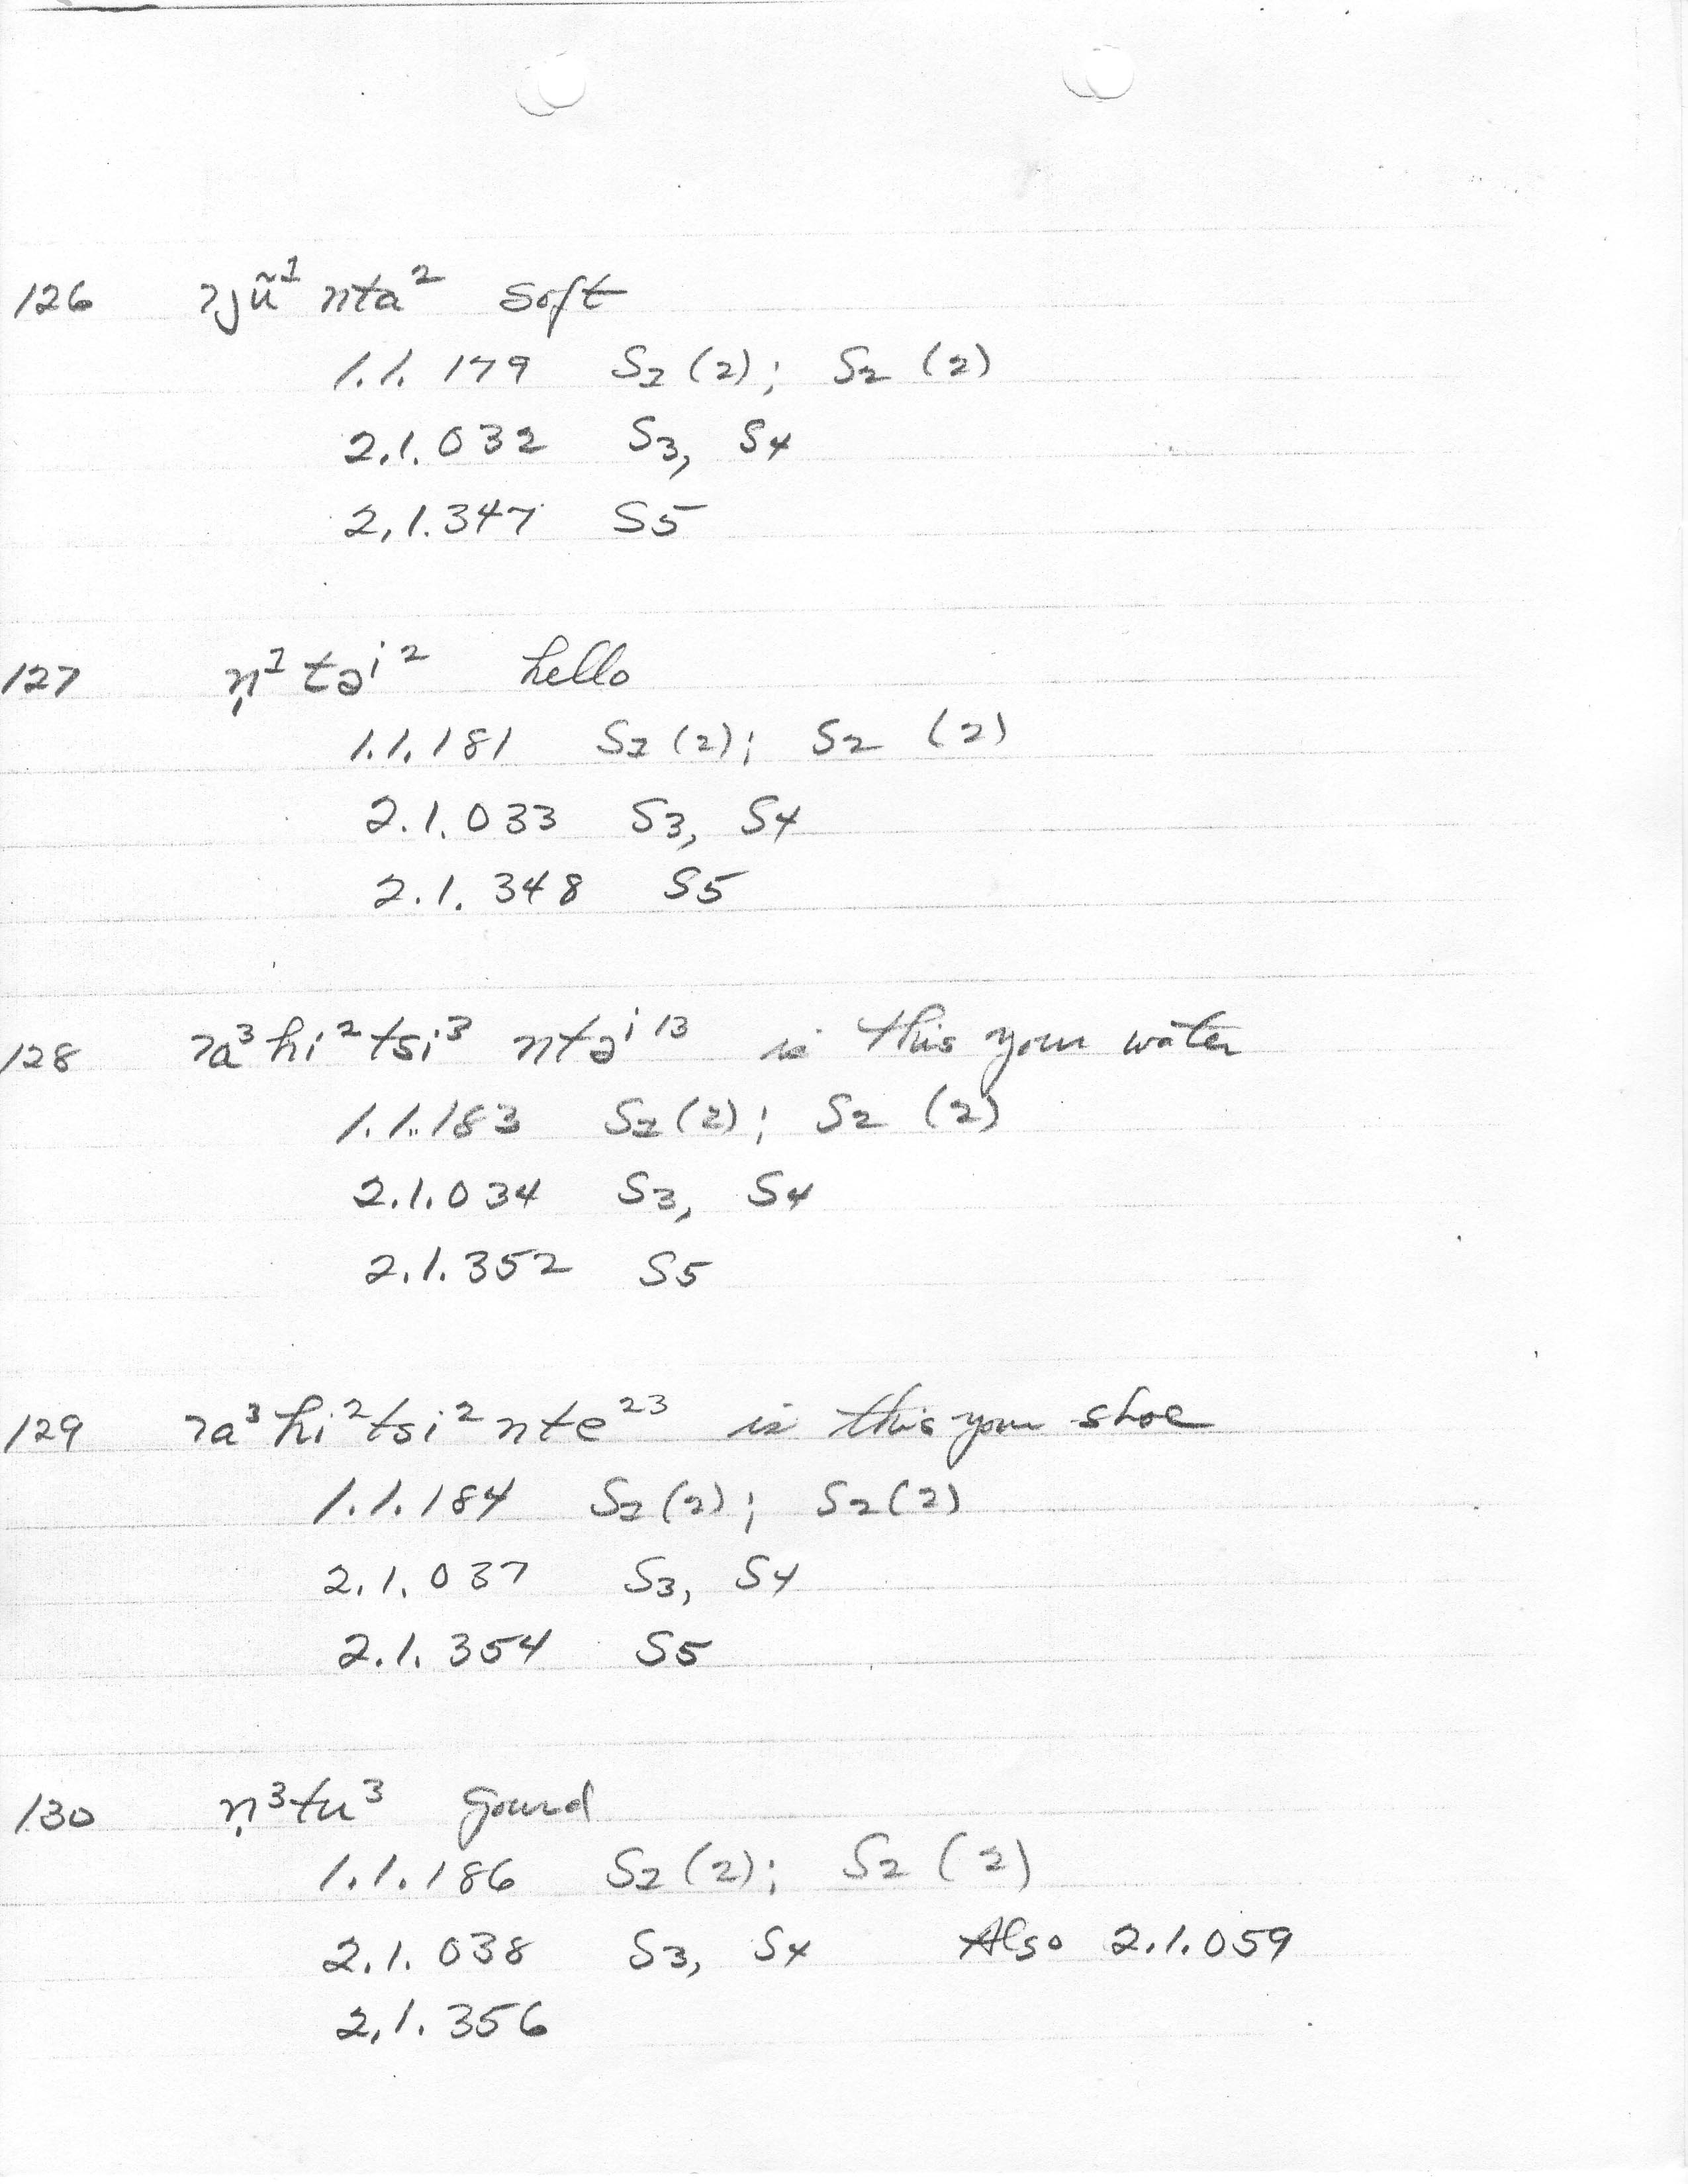 126 ʔjũ¹ nta² soft
1.1.179 S1 (2); S2 (2)
2.1.032 S3, S4
2.1.347 S5
127 n̩¹ təⁱ² hello
1.1.181 S1 (2); S2 (2)
2.1.033 S3, S4
2.1.348 S5
128 ʔa³ hi² tsi³ ntəⁱ¹³ is this your water
1.1.183 S1 (2); S2 (2)
2.1.034 S3, S4
2.1.352 S5
129 ʔa³ hi² tsi² nte²³ is this your shoe
1.1.184 S1 (2); S2 (2)
2.1.037 S3, S4
2.1.354 S5
130 n̩³tu³ gourd
1.1.186 S1 (2); S2 (2)
2.1.038 S3, S4 Also 2.1.059
2.1.356